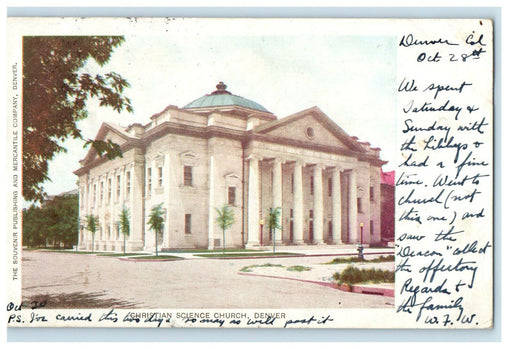 Denver Col
Oct 28th
We spent
Saturday &
Sunday with
the
had a fine
time. Went to
church (not
this one) and
saw the
"Deacon" collect
the offertory
Regards to
the family
W. F. W.
THE SOUVENIR PUBLISHING AND MERCANTILE COMPANY, DENVER.
CHRISTIAN SCIENCE CHURCH, DENVER
Oct 30
P.S. I've carried this two days so may as well post it